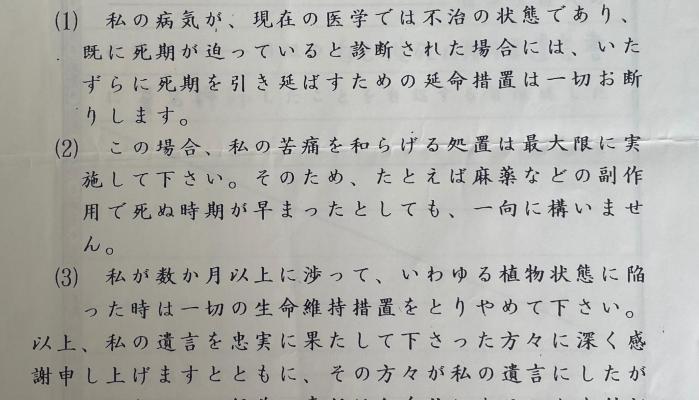 (1) 私の病気が、現在の医学では不治の状態であり、
既に死期が迫っていると診断された場合には、いた
ずらに死期を引き延ばすための延命措置は一切お断
りします。
(2) この場合、私の苦痛を和らげる処置は最大限に実
施して下さい。そのため、たとえば麻薬などの副作
用で死ぬ時期が早まったとしても、一向に構いませ
ん。
(3) 私が数か月以上に渉って、いわゆる植物状態に陥
った時は一切の生命維持措置をとりやめて下さい。
以上、私の遺言を忠実に果たして下さった方々に深く感
謝申し上げますとともに、その方々が私の遺言にしたが